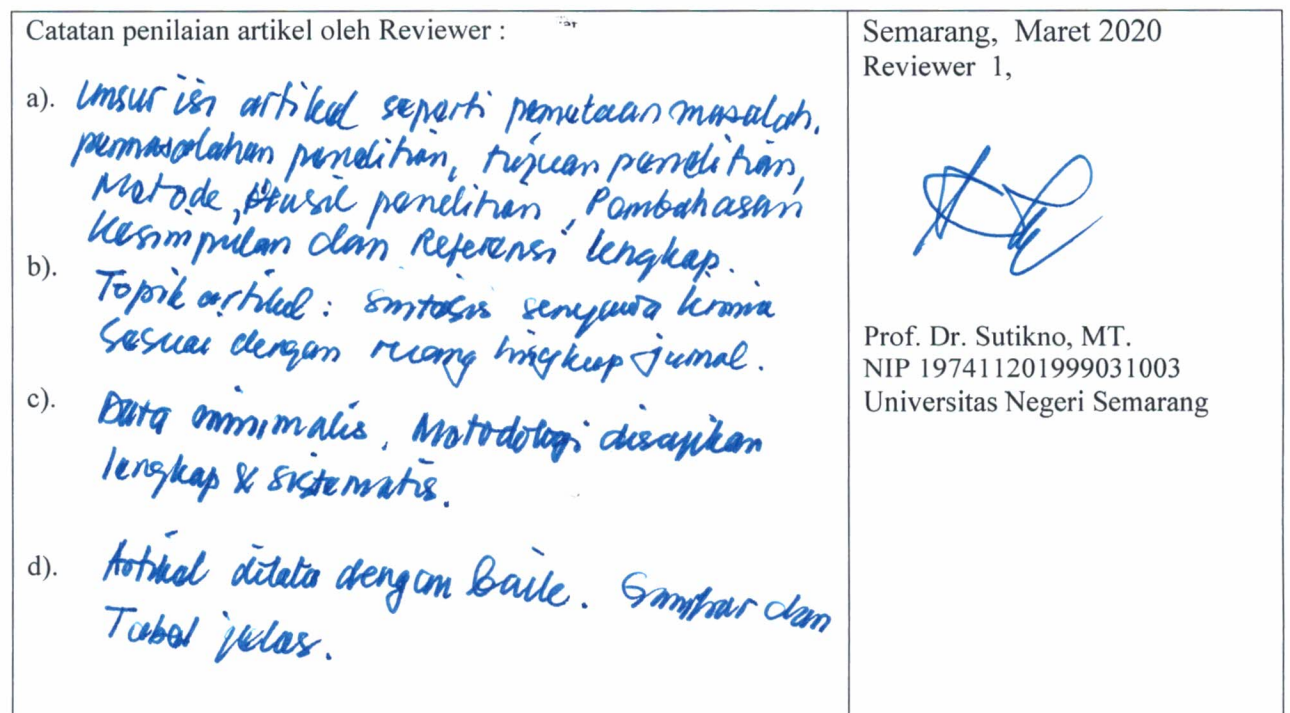 Catatan penilaian artikel oleh Reviewer :
a). Unsur isi artikel seperti pemetaan masalah,
permasalahan penelitian, tujuan penelitian,
Metode, Hasil penelitian, Pembahasan
Kesimpulan dan Referensi lengkap.
b).
Topik artikel : sintesis senyawa kimia
sesuai dengan ruang lingkup jurnal.
c).
Data minimalis, Metodologi disajikan
lengkap & sistematis.
d). Artikel ditata dengan baik. Gambar dan
Tabel jelas.
Semarang, Maret 2020
Reviewer 1,
Prof. Dr. Sutikno, MT.
NIP 197411201999031003
Universitas Negeri Semarang